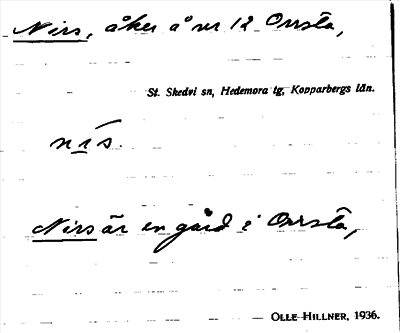 Nirs, åker å nr 12 Orrsta,
St. Skedvi sn, Hedemora tg, Kopparbergs län.
nı́s.
Nirs är en gård i Orrsta,
OLLE HILLNER, 1936.